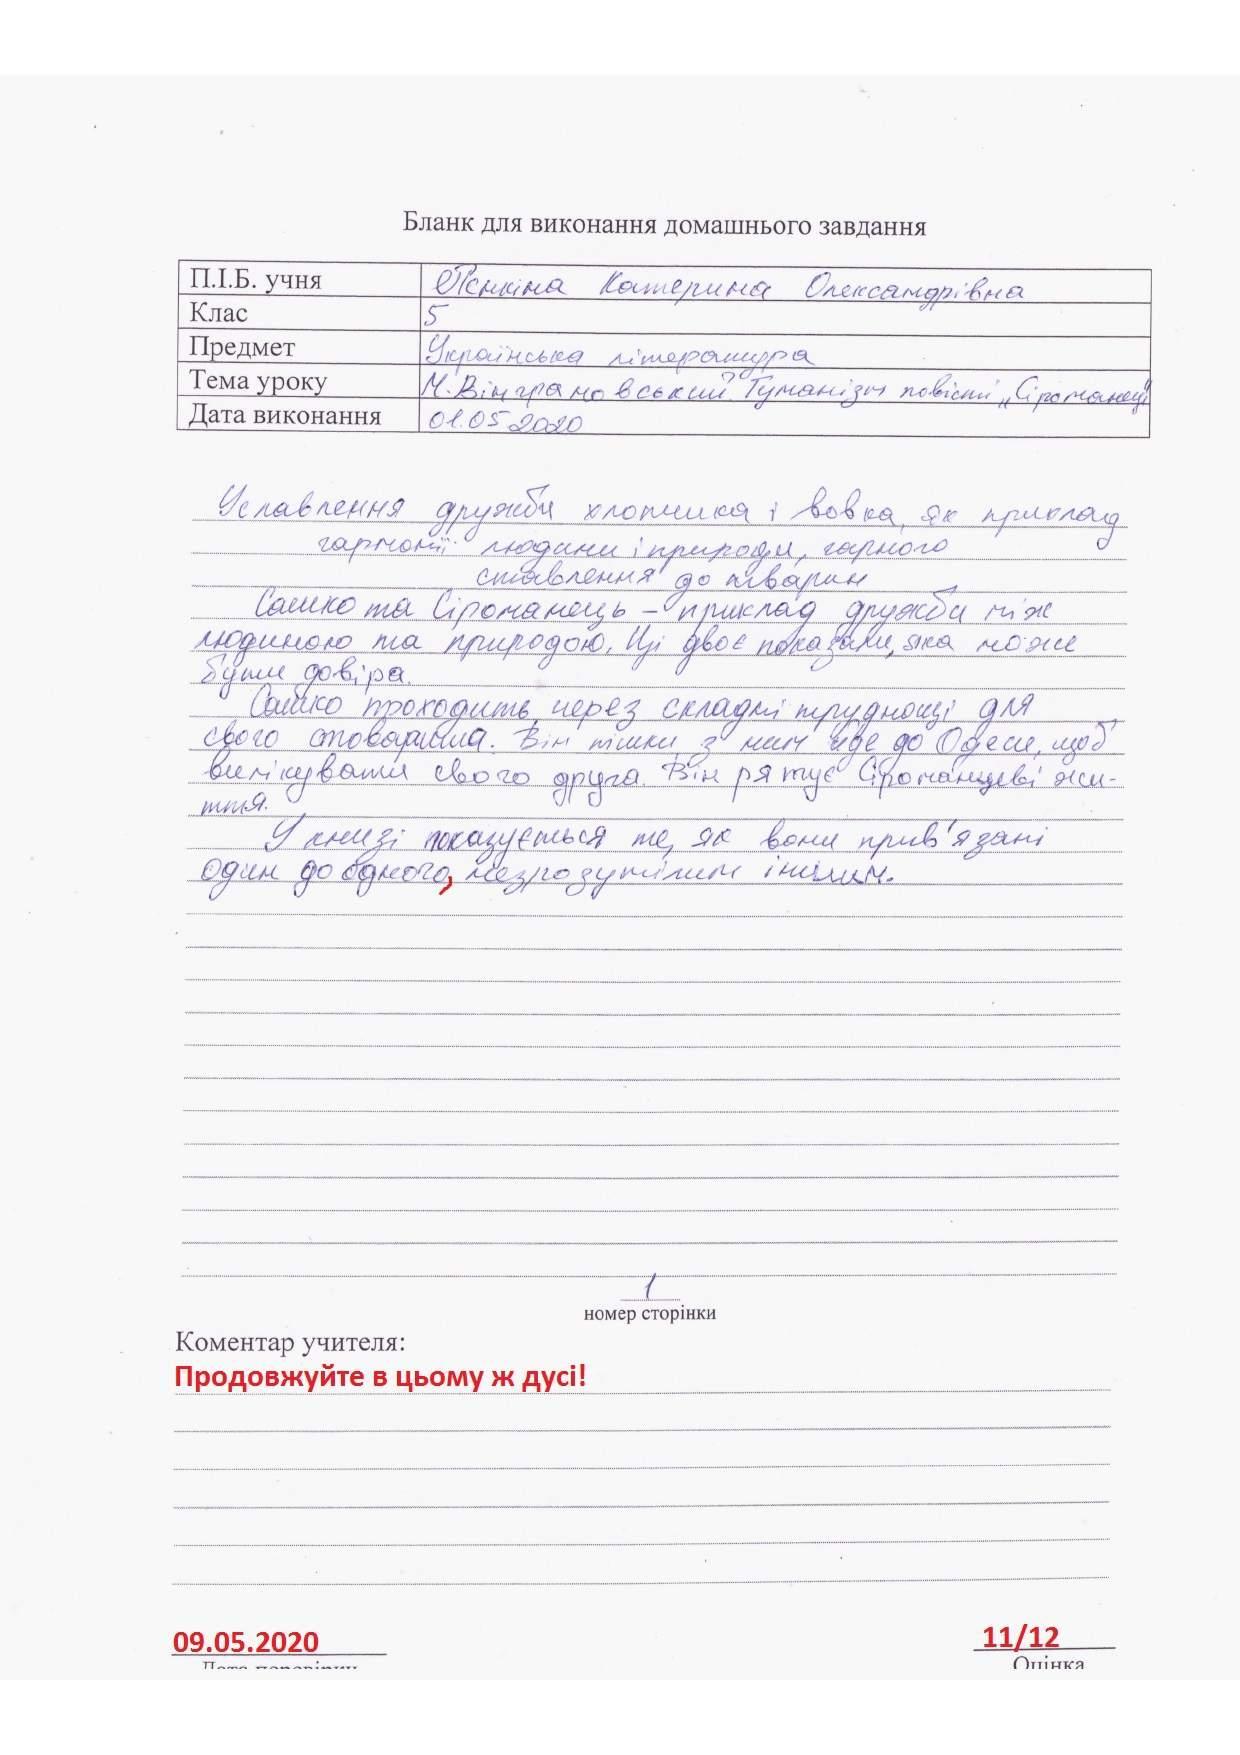 Бланк для виконання домашнього завдання
П.І.Б. учня Пєнкіна Катерина Олександрівна
Клас 5
Предмет Українська література
Тема уроку М. Вінграновський. Гуманізм повісті „Сіроманець"
Дата виконання 01.05.2020
Уславлення дружби хлопчика і вовка, як приклад
гармонії людини і природи, гарного
ставлення до тварин
Сашко та Сіроманець – приклад дружби між
людиною та природою. Ці двоє показали, яка може
бути довіра.
Сашко проходить через складні труднощі для
свого товариша. Він пішки з ним йде до Одеси, щоб
вилікувати свого друга. Він рятує Сіроманцеві жи-
ття.
У книзі показується те, як вони прив'язані
один до одного, незрозумілим іншим.
1
номер сторінки
Коментар учителя:
Продовжуйте в цьому ж дусі!
09.05.2020 11/12
Дата перевірки Оцінка